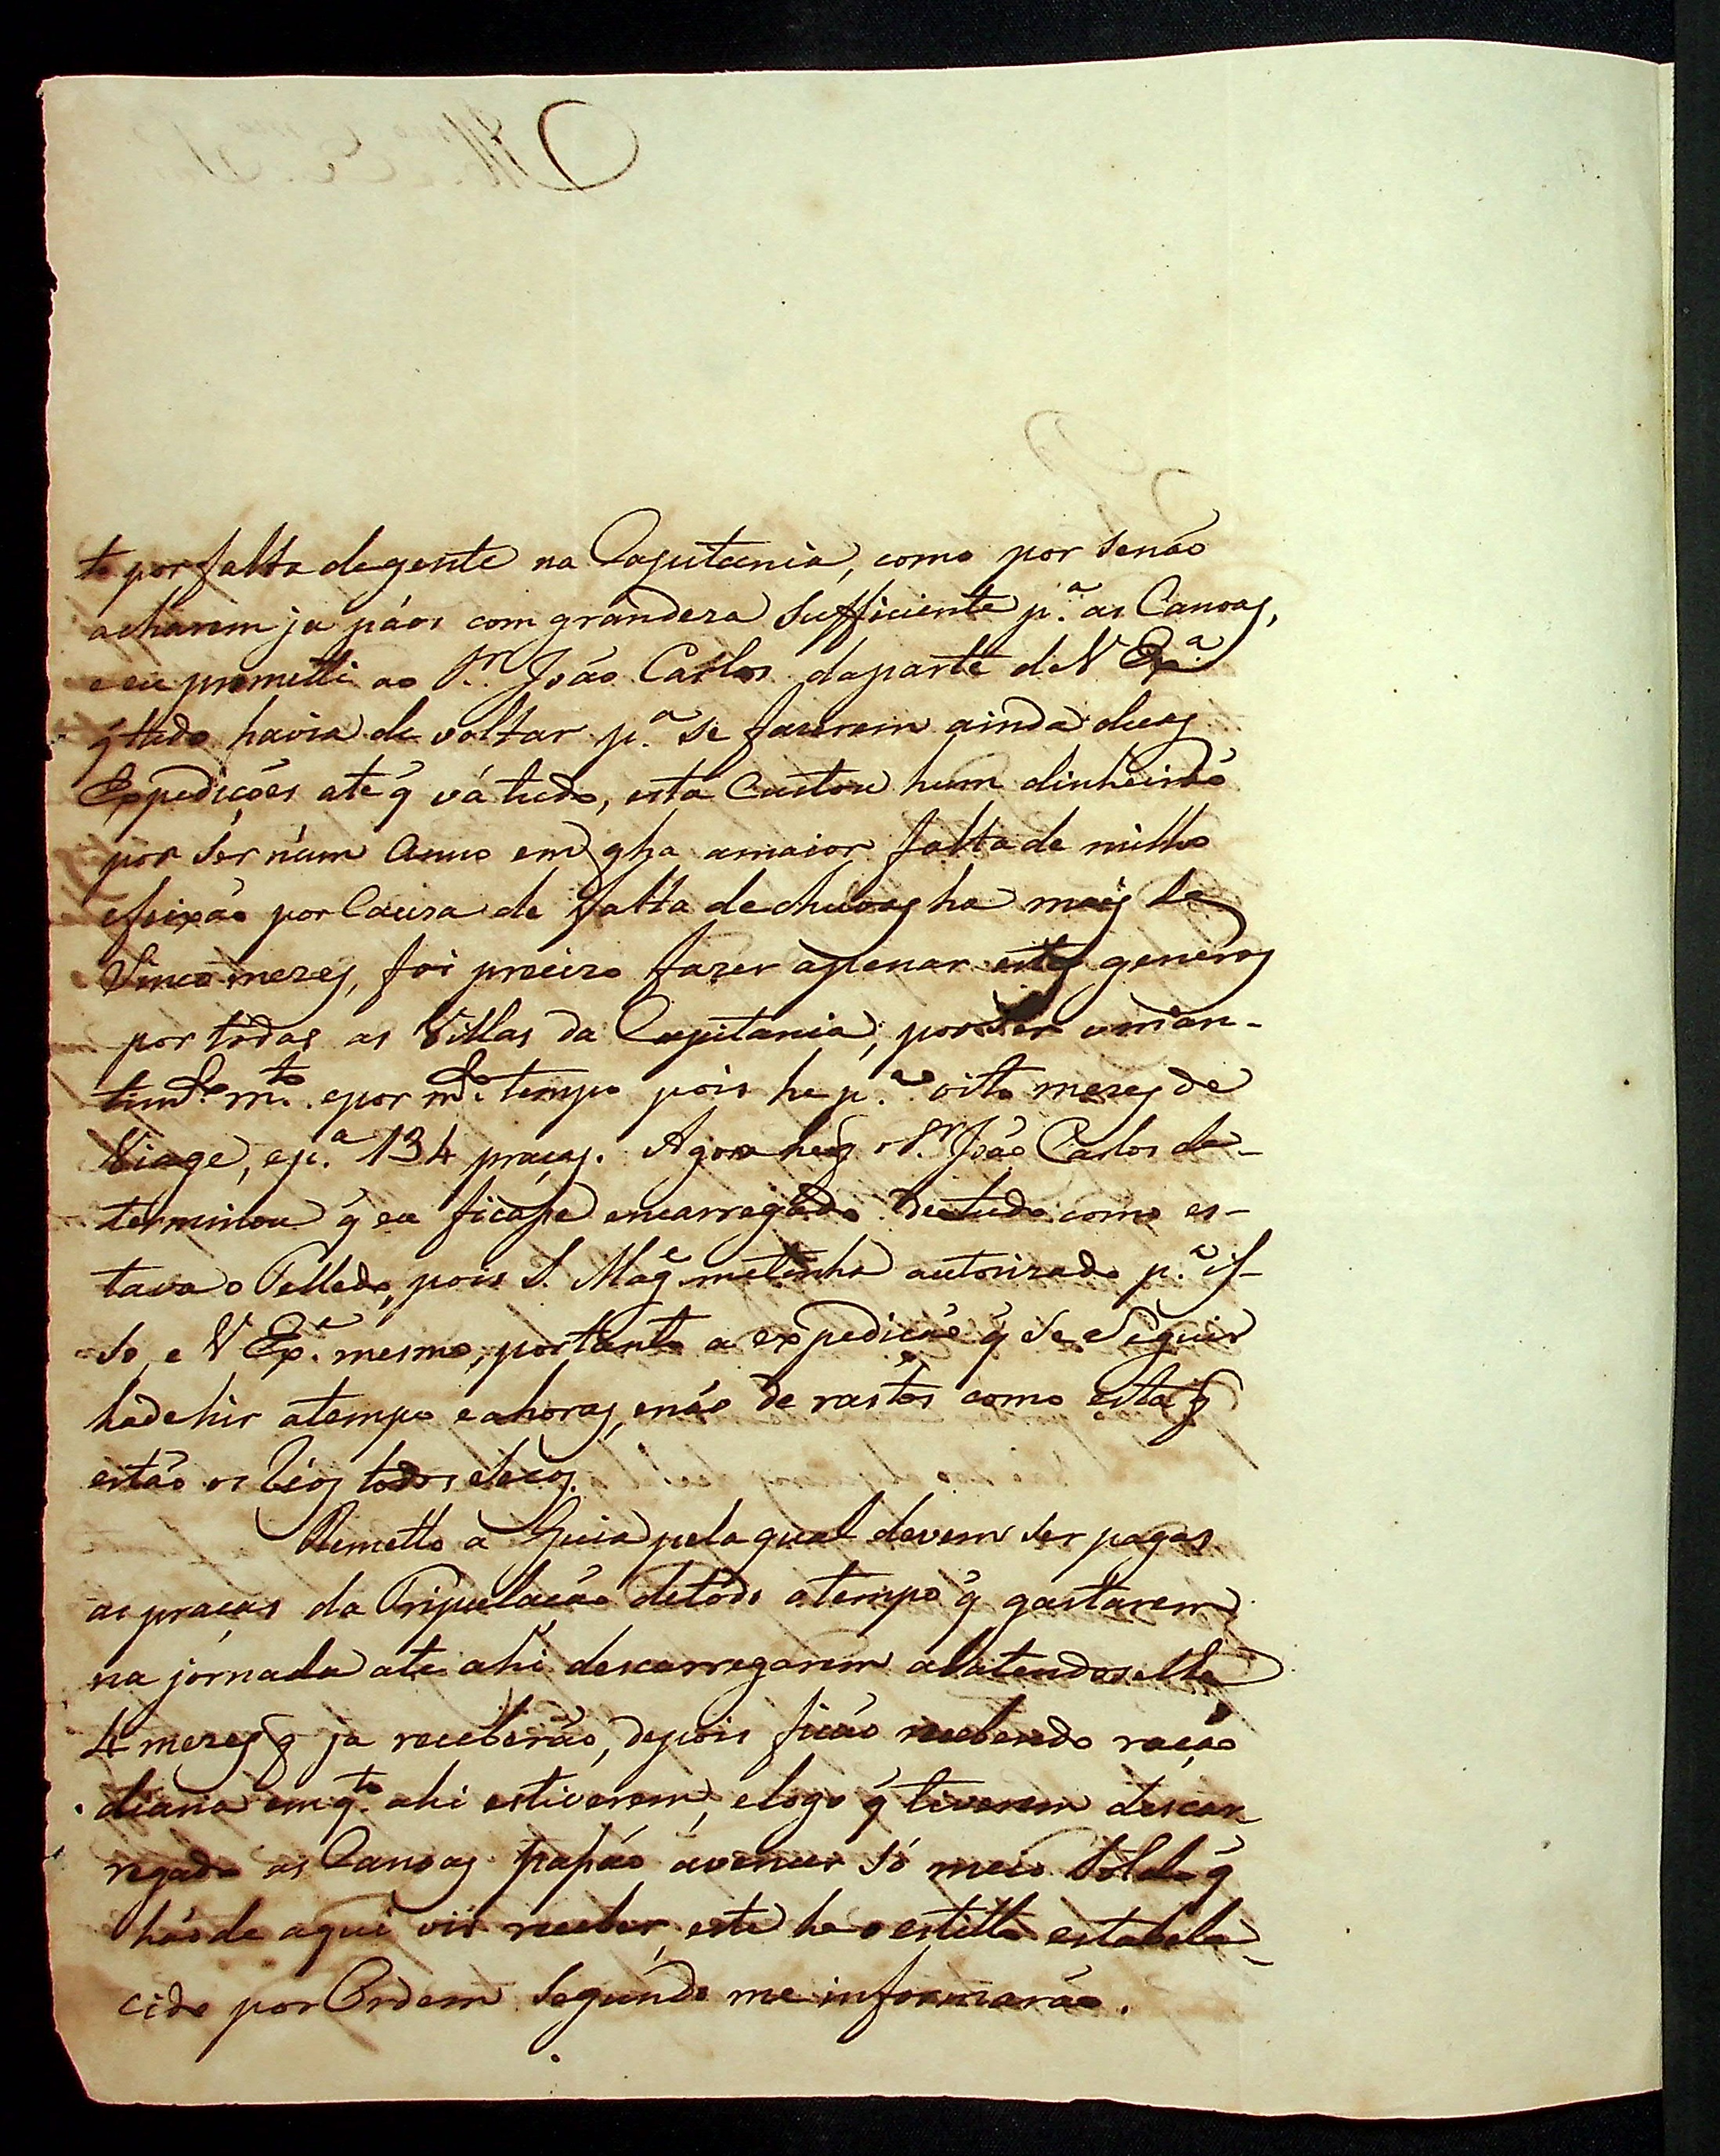 to por falta degente na Capitania, como por Senão
acharem ja páos com grandeza Sufficiente p.ª as Canoas,
e eu prometti ao S.r João Carlos daparte deV Ex.ª
q̃ tudo havia de voltar p.ª se fazerem ainda duas
Expedições até q̃ vá tudo, esta Custou hum dinheirão
por Ser núm Anno em q̃ ha amaior falta de milho
efeixão por Cauza de falta dechuvas ha mais de
Sinco mezes, foi precizo fazer apenar estes generos
por todas as Villas da Capitania, por Ser oman-
tim.to m.to epor m.to tempo pois he p.ª oito mezes de
Viage, ep.ª 134 praças. Agora he q̃ oS.r João Carlos de-
terminou q̃ eu ficasse encarregado detudo como es-
tava o Tolledo, pois S. Mag.e metinha autorizado p.ª is-
So, e V Ex.ª mesmo, portanto a expedição q̃ Se Seguir
hadehir atempo eahoras, enão de rastos como esta q̃
estão os Rios todos Secos.
Remetto a Guia pelaqual devem Ser pagas
as praças da Tripulação detodo otempo q̃ gastarem
na jornada ate ahi descarregarem abatendoselhe
4 mezes q̃ ja receberão, depois ficão recebendo ração
diaria emq.to ahi estiverem, elogo q̃ tiverem descar-
regado as Canoas passão avencer Só meio Soldo q̃
hãode aqui vir receber, este he o estillo estabele-
cido por Ordem Segundo me informarão.